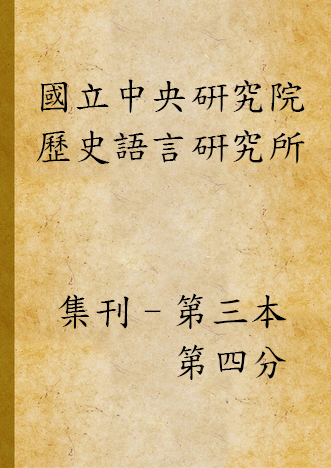 國立中央研究院
歷史語言研究所
集刊－第三本
第四分